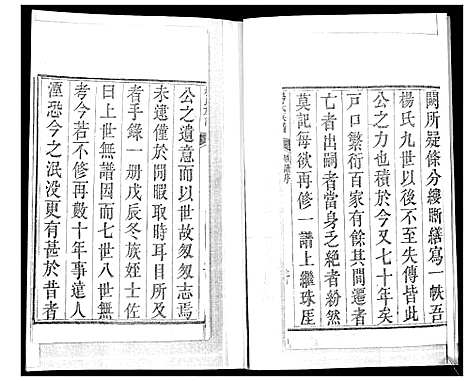 闕所疑條分縷晰繕寫一帙吾
楊氏九世以上不至失傳皆此
公之力也迄於今又七十年矣
戸口繁衍百家有餘其間遷者
亡者出嗣者當身之絶者紛然
莫記每欲再修一譜上繼珠厓
公之遺意而以世故匆匆志焉
未逮僅於閒暇取時耳目所及
者手錄一册戊辰冬族姪士佐
曰上世無譜因而七世八世無
考今若不修再數十年事遠人
湮恐今之泯没更有甚於昔者